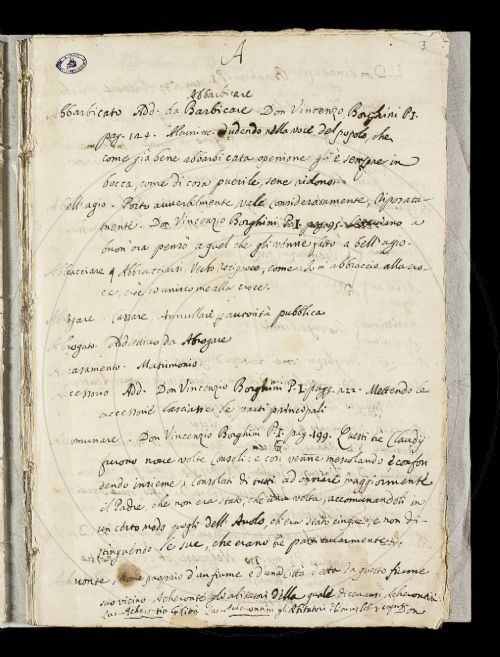 A
3
Abbarbicare
Abbarbicato Add. da Barbicare. Don Vincenzo Borghini P. I.
pag. 124. ludendo nella voce del popolo, che
come già bene abbarbicata openione gli è sempre in
bocca, come di cosa puerile, sene ridono
A bell'agio. Posto avverbialmente, vale consideratamente, riposata-
mente. Don Vincenzio Borghini P. I. pag. 95. a
buon'ora pensò a quel che gli venne fatto a bell'agio.
Abbracciare Abbracciarsi Verbo reciproco, come Io m'abbraccio alla cro-
ce, cioè io unirome alla croce.
Abrogare Cassare, Annullare autorità pubblica
Abrogato Addiettivo da Abrogare
Accasamento. Matrimonio
Accessorio Add. Don Vincenzio Borghini P. I. pag. 122. Mettendo le
accessorie lasciasse le parti principali
Accomunare. Don Vincenzio Borghini P. I. pag. 199. Questi tre Claudij
furono nove volte Consoli: e così venne mescolando e confon
dendo insieme i Consolati di tutti ad onorare maggiormente
il Padre, che non era stato che una volta, accomunandoli in
un certo modo quegli dell'Avolo, ch'era stato cinque, e non di-
stinguendo le sue, che erano tre particularmente.
Acheronte, Nome proprio d'un fiume e d'una Città detta da questo fiume
suo vicino Acheronte gli abitatori della quale dicevansi Acherontini